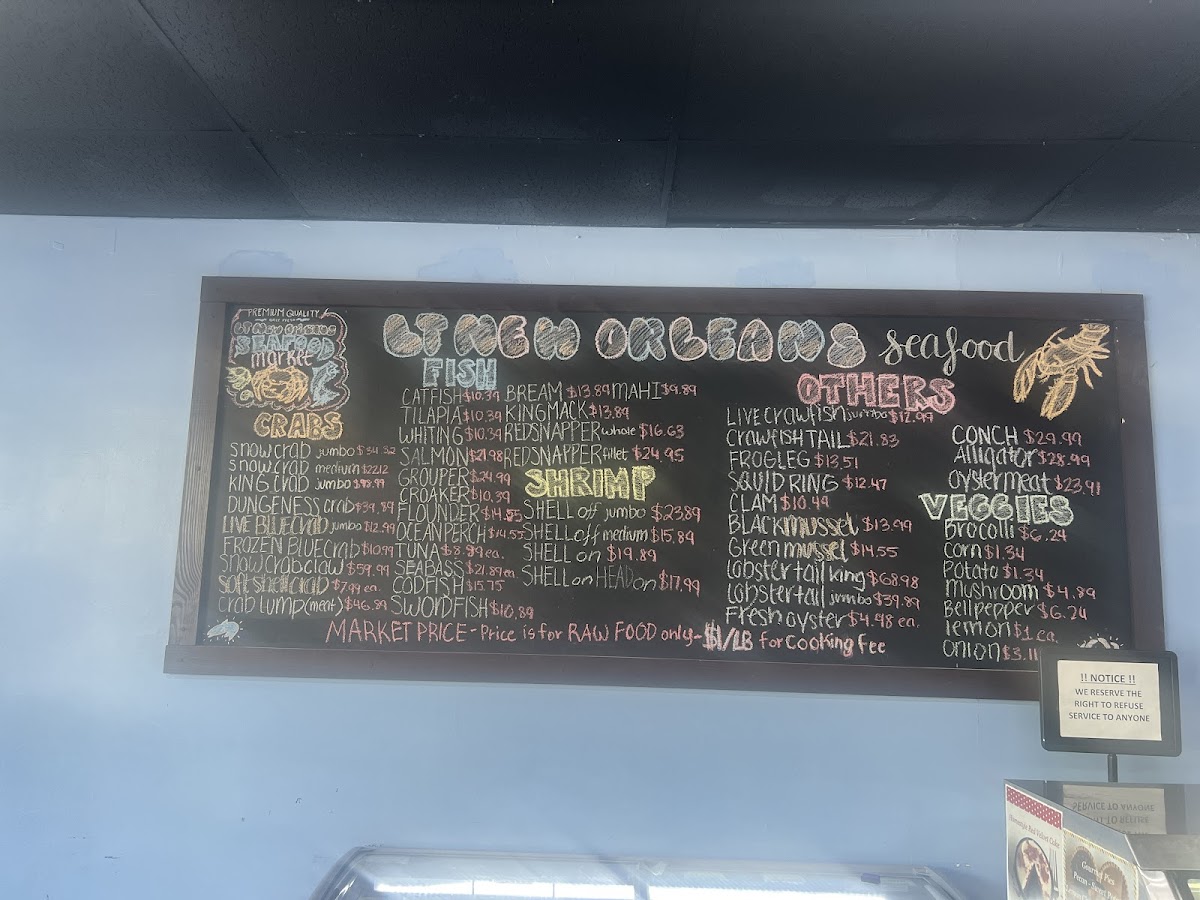 PREMIUM QUALITY
LT NEW ORLEANS
SEAFOOD
market
LT NEW ORLEANS seafood
CRABS
snow crab jumbo $34.32
snow crab medium $22.12
KING crab jumbo $98.99
DUNGENESS crab $39.89
LIVE BLUE crab jumbo $12.99
FROZEN BLUE crab $10.99
snow crab claw $59.99
soft shell crab $7.99 ea.
crab lump (meat) $46.89
FISH
CATFISH $10.39
TILAPIA $10.39
WHITING $10.39
SALMON $21.98
GROUPER $24.99
CROAKER $10.39
FLOUNDER $14.55
OCEAN PERCH $14.55
TUNA $8.99 ea.
SEABASS $21.89 ea
CODFISH $15.75
SWORDFISH $10.89
BREAM $13.89
KINGMACK $13.89
REDSNAPPER whole $16.63
REDSNAPPER fillet $24.95
MAHI $9.89
SHRIMP
SHELL off jumbo $23.89
SHELL off medium $15.89
SHELL on $19.89
SHELL on HEAD on $17.99
OTHERS
LIVE crawfish jumbo $12.99
crawfish TAIL $21.83
FROG LEG $13.51
SQUID RING $12.47
CLAM $10.49
BLACK mussel $13.99
Green mussel $14.55
lobster tail king $68.98
lobster tail jumbo $39.89
Fresh oyster $4.98 ea.
CONCH $29.99
Alligator $28.99
oyster meat $23.91
VEGGIES
Brocolli $6.24
corn $1.34
Potato $1.34
mushroom $4.89
Bell pepper $6.24
lemon $1 ea.
onion $3.11
MARKET PRICE - Price is for RAW FOOD only - $1/LB for cooking fee
!! NOTICE !!
WE RESERVE THE
RIGHT TO REFUSE
SERVICE TO ANYONE
SERVICE TO ANYONE
RIGHT TO REFUSE
Homestyle Red Velvet Cake
Gourmet Pies